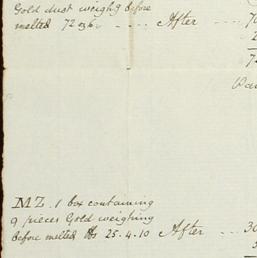 Gold dust weighg before
melted 72 ozs. ..... After .... 70
2
72
MZ. 1 box containing
9 pieces Gold weighing
before melted lbs 25.4.10 After ... 30